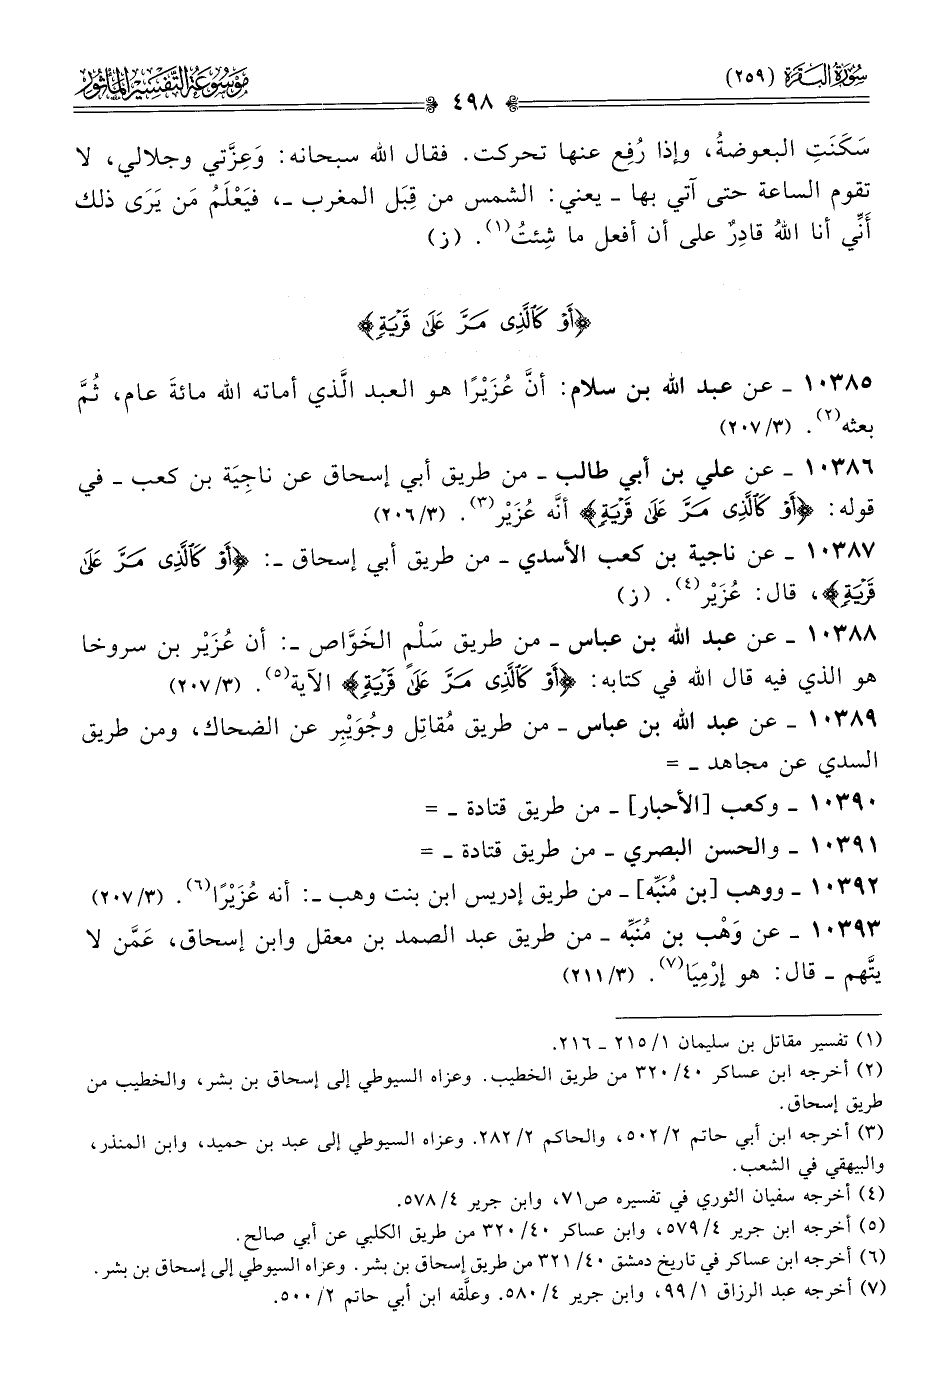 سورة البقرة (٢٥٩)
موسوعة التفسير المأثور
٤٩٨
سَكَنَتِ البعوضةُ، وإذا رُفِع عنها تحركت. فقال الله سبحانه: وَعِزَّتي وجلالي، لا
تقوم الساعة حتى آتي بها ـ يعني: الشمس من قِبَل المغرب ـ، فيَعْلَمُ مَن يَرَى ذلك
أَنِّي أنا اللهُ قادِرٌ على أن أفعل ما شِئتُ(١). (ز)
﴿أَوْ كَٱلَّذِى مَرَّ عَلَىٰ قَرْيَةٍ﴾
١٠٣٨٥ ـ عن عبد الله بن سلام: أنَّ عُزَيْرًا هو العبد الَّذي أماته الله مائةَ عام، ثُمَّ
بعثه(٢). (٢٠٧/٣)
١٠٣٨٦ ـ عن علي بن أبي طالب ـ من طريق أبي إسحاق عن ناجيَة بن كعب ـ في
قوله: ﴿أَوْ كَٱلَّذِى مَرَّ عَلَىٰ قَرْيَةٍ﴾ أنَّه عُزَيْر(٣). (٢٠٦/٣)
١٠٣٨٧ ـ عن ناجية بن كعب الأسدي ـ من طريق أبي إسحاق ـ: ﴿أَوْ كَٱلَّذِى مَرَّ عَلَىٰ
قَرْيَةٍ﴾، قال: عُزَيْر(٤). (ز)
١٠٣٨٨ ـ عن عبد الله بن عباس ـ من طريق سَلْمٍ الخَوَّاص ـ: أن عُزَيْر بن سروخا
هو الذي فيه قال الله في كتابه: ﴿أَوْ كَٱلَّذِى مَرَّ عَلَىٰ قَرْيَةٍ﴾ الآية(٥). (٢٠٧/٣)
١٠٣٨٩ ـ عن عبد الله بن عباس ـ من طريق مُقاتِل وجُوَيْبِر عن الضحاك، ومن طريق
السدي عن مجاهد ـ =
١٠٣٩٠ ـ وكعب [الأحبار] ـ من طريق قتادة ـ =
١٠٣٩١ ـ والحسن البصري ـ من طريق قتادة ـ =
١٠٣٩٢ ـ ووهب [بن مُنَبِّه] ـ من طريق إدريس ابن بنت وهب ـ: أنه عُزَيْرًا(٦). (٢٠٧/٣)
١٠٣٩٣ ـ عن وَهْب بن مُنَبِّه ـ من طريق عبد الصمد بن معقل وابن إسحاق، عَمَّن لا
يتَّهم ـ قال: هو إرْمِيَا(٧). (٢١١/٣)
(١) تفسير مقاتل بن سليمان ٢١٥/١ ـ ٢١٦.
(٢) أخرجه ابن عساكر ٣٢٠/٤٠ من طريق الخطيب. وعزاه السيوطي إلى إسحاق بن بشر، والخطيب من
طريق إسحاق.
(٣) أخرجه ابن أبي حاتم ٥٠٢/٢، والحاكم ٢٨٢/٢. وعزاه السيوطي إلى عبد بن حميد، وابن المنذر،
والبيهقي في الشعب.
(٤) أخرجه سفيان الثوري في تفسيره ص٧١، وابن جرير ٥٧٨/٤.
(٥) أخرجه ابن جرير ٥٧٩/٤، وابن عساكر ٣٢٠/٤٠ من طريق الكلبي عن أبي صالح.
(٦) أخرجه ابن عساكر في تاريخ دمشق ٣٢١/٤٠ من طريق إسحاق بن بشر. وعزاه السيوطي إلى إسحاق بن بشر.
(٧) أخرجه عبد الرزاق ٩٩/١، وابن جرير ٥٨٠/٤. وعلَّقه ابن أبي حاتم ٥٠٠/٢.